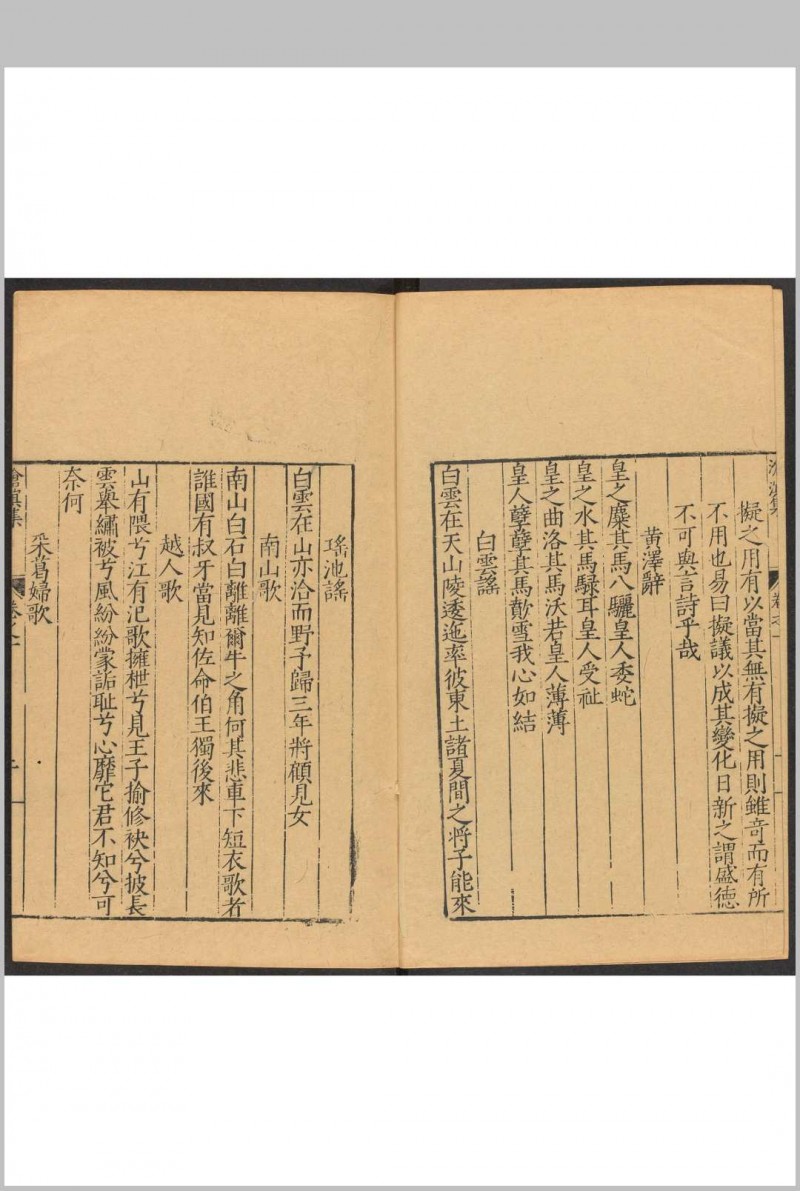 擬之用有以當其無有擬之用則雖奇而有所
不用也易曰擬議以成其變化日新之謂盛德
不可與言詩乎哉
黃澤辭
皇之麋其馬八驪皇人委蛇
皇之水其馬騄耳皇人受祉
皇之曲洛其馬沃若皇人薄薄
皇人孽孽其馬歕雪我心如結
白雲謠
白雲在天山陵逶迤率彼東土諸夏間之將子能來
瑤池謠
白雲在山亦洽而野予歸三年將顧見女
南山歌
南山白石白離離爾牛之角何其悲車下短衣歌者
誰國有叔牙當見知佐命伯王獨後來
越人歌
山有隈兮江有汜歌擁枻兮見王子揄修袂兮披長
雲舉繡被兮風紛紛蒙詬恥兮心靡它君不知兮可
奈何
采葛婦歌